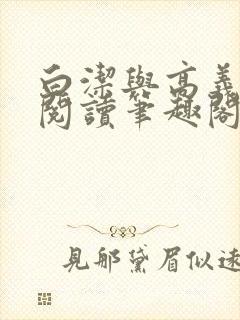 白潔與高義
閱讀筆趣閣
見那黛眉似遠